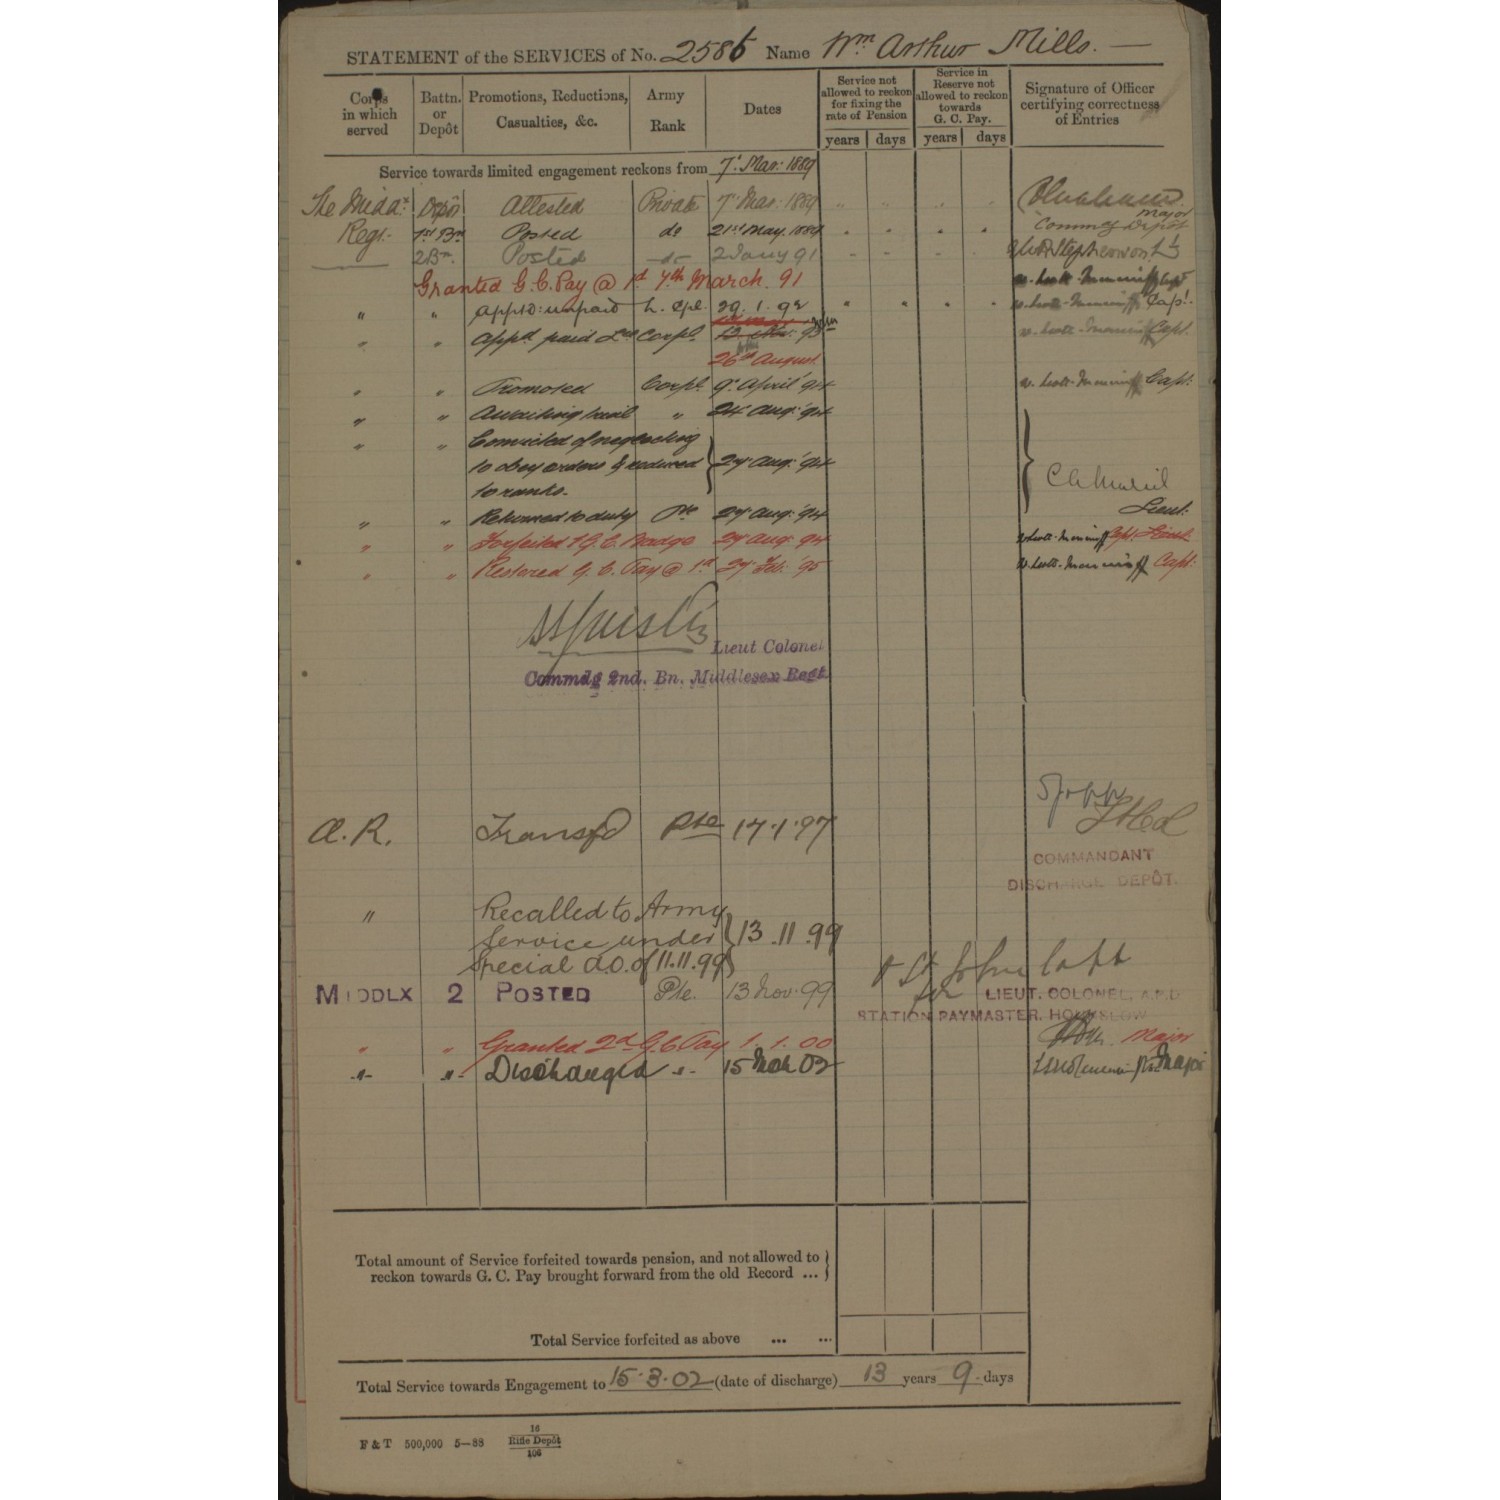 STATEMENT of the SERVICES of No. 2585 Name Wm Arthur Mills. —
Corps in which served
Battn. or Depôt
Promotions, Reductions, Casualties, &c.
Army Rank
Dates
Service not allowed to reckon for fixing the rate of Pension
years days
Service in Reserve not allowed to reckon towards G. C. Pay.
years days
Signature of Officer certifying correctness of Entries
Service towards limited engagement reckons from 7' Mar: 1889
The Midd'x Depôt Attested Private 7' Mar: 1889 Major
Regt. 1st Bn Posted do 21st May. 1889 Commg Depôt
2 Bn. Posted -do- 2 Jany 91
Granted G.C. Pay @ 1d 7th March. 91
" " Apptd: unpaid L. Cpl. 29. 1. 92 Capt.
" " Appd paid Lce Corpl. Capt.
26th August
" " Promoted Corpl. 9' April '94 Capt.
" " Awaiting trial " 24 Aug: '94
" " Convicted of neglecting
to obey orders & reduced 27 Aug: '94
to ranks.
Lieut.
" " Returned to duty Pte 27 Aug: '94
" " Forfeited 1 G.C. Badge 27 Aug: 94
" " Restored G. C. Pay @ 1d 27 Feb: '95 Capt:
Lieut Colonel
Commdg 2nd. Bn. Middlesex Regt
A. R. Transfd Pte 17.1.97
COMMANDANT
DISCHARGE DEPÔT.
" Recalled to Army
Service under 13.11.99
Special A.O. of 11.11.99
MIDDLX 2 POSTED Pte. 13 Nov. 99
for LIEUT. COLONEL, A.P.D.
STATION PAYMASTER, HOUNSLOW
" " Granted 2d G.C. Pay 1. 1. 00 Major
-"- -"- Discharged -"- 15 Mch 02 Major
Total amount of Service forfeited towards pension, and not allowed to
reckon towards G. C. Pay brought forward from the old Record ...
Total Service forfeited as above ... ...
Total Service towards Engagement to 15.3.02 (date of discharge) 13 years 9 days
F & T 500,000 5—88 16
Rifle Depôt
106